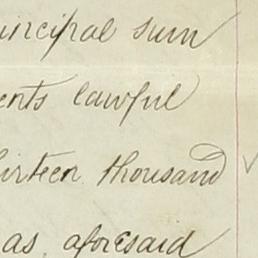 uincipal sum
ents lawful
hirteen thousand
as aforesaid